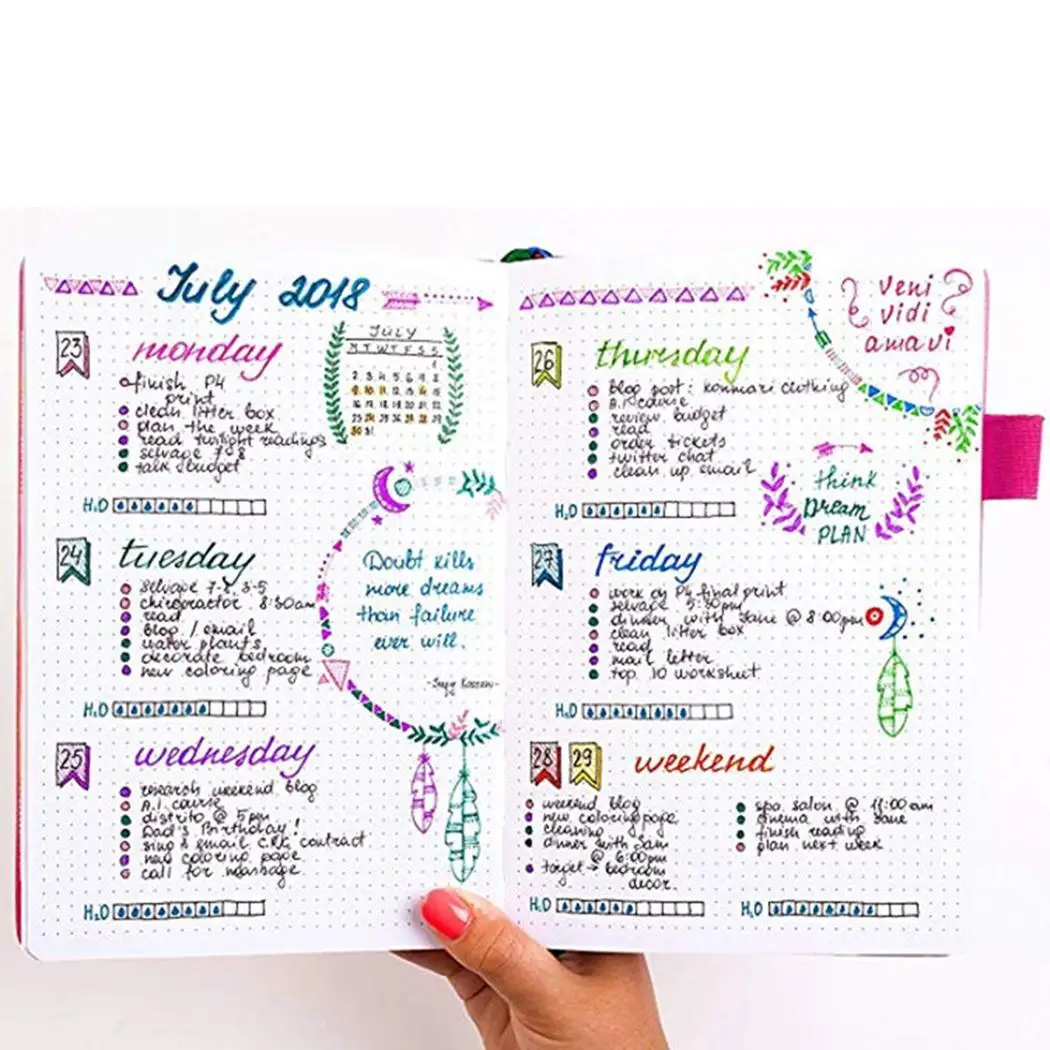 July 2018
23
monday
finish P4
print
clean litter box
plan the week
read twilight readings
selvage 7-8
talk budget
H2O
JULY
M T W T F S S
1
2 3 4 5 6 7 8
9 10 11 12 13 14 15
16 17 18 19 20 21 22
23 24 25 26 27 28 29
30 31
24
tuesday
selvage 7-8, 3-5
chiropractor 8:30am
read
blog / email
water plants
decorate bedroom
new coloring page
H2O
Doubt kills
more dreams
than failure
ever will.
25
wednesday
research weekend blog
A.I. course
distrito @ 5pm
Dad's Birthday!
sing & email contract
new coloring page
call for massage
H2O
veni
vidi
amavi
26
thursday
blog post: konmari clothing
A.I. course
review budget
read
order tickets
twitter chat
clean up email
H2O
think
Dream
PLAN
27
friday
work on P4 final print
selvage 5:30pm
dinner with Jane @ 8:00pm
clean litter box
read
mail letter
top 10 worksheet
H2O
28 29
weekend
weekend blog
new coloring page
cleaning
dinner with Sam
@ 6:00pm
target → bedroom
decor.
H2O
spa salon @ 11:00am
cinema with Jane
finish reading
plan next week
H2O